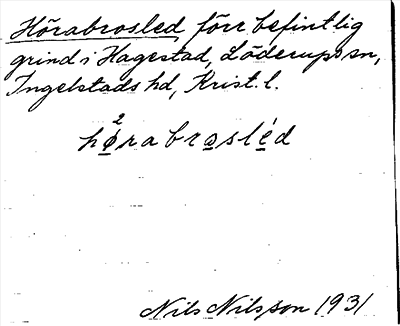 Hörabrosled förr befintlig
grind i Hagestad, Löderups sn,
Ingelstads hd, Krist. l.
2
hørabrosléd
Nils Nilsson 1931